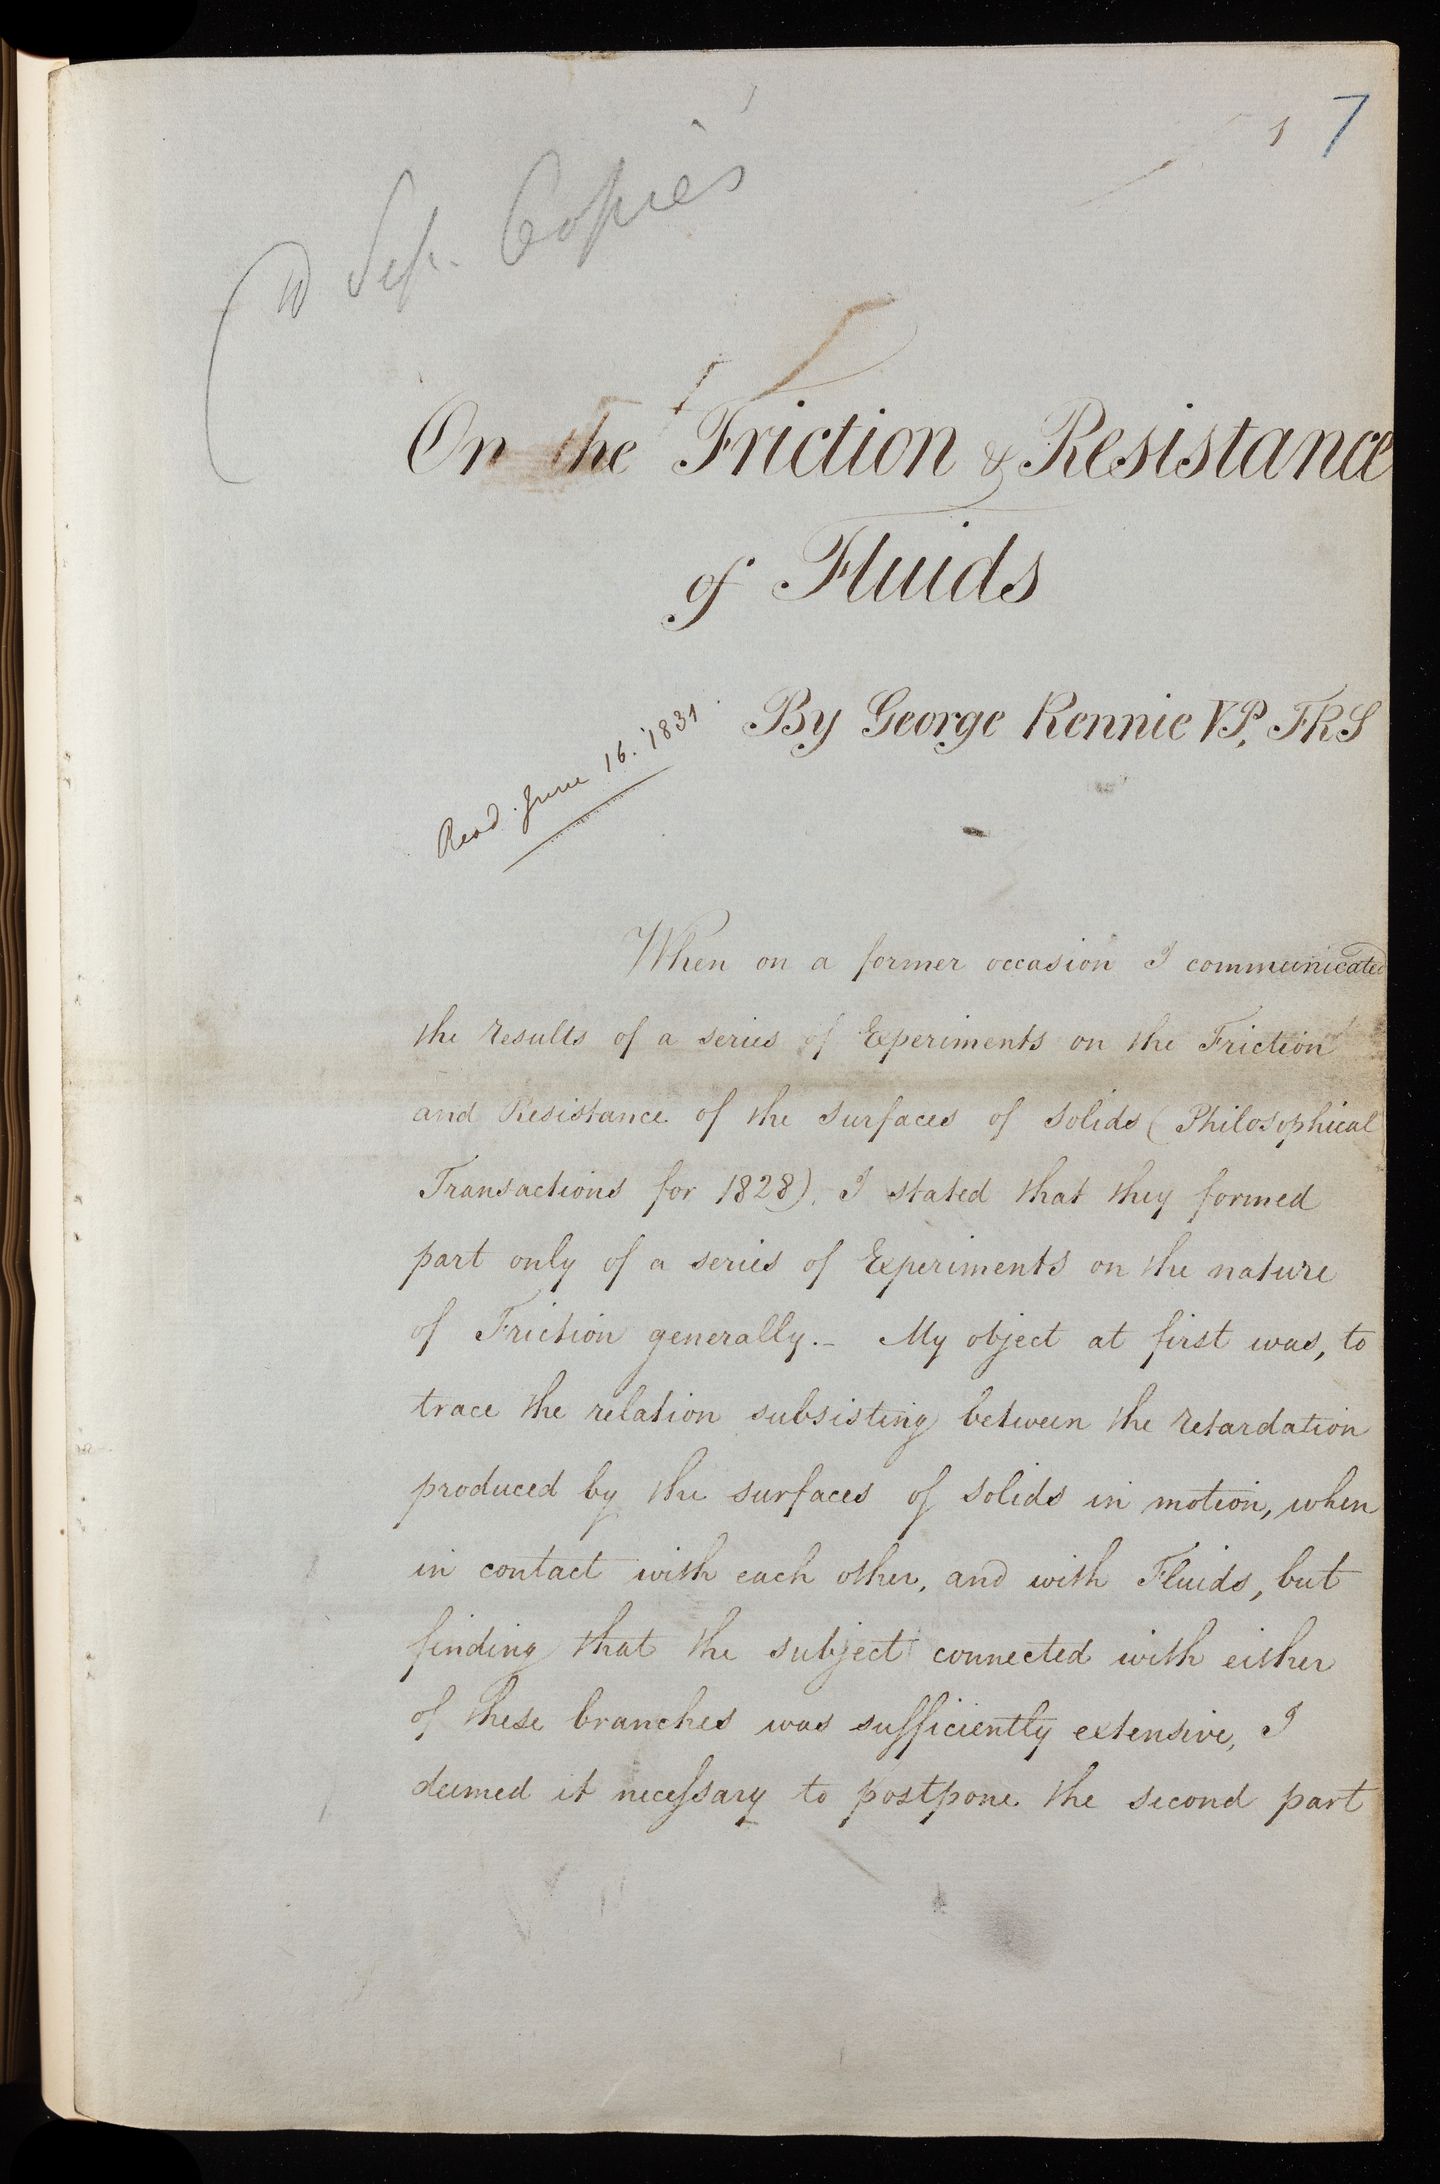 1 7
Sep. Copies
On the Friction & Resistance
of Fluids
By George Rennie VP, FRS
Read June 16. 1831.
When on a former occasion I communicated
the results of a series of Experiments on the Friction
and Resistance of the surfaces of solids (Philosophical
Transactions for 1828). I stated that they formed
part only of a series of Experiments on the nature
of Friction generally. – My object at first was, to
trace the relation subsisting between the retardation
produced by the surfaces of solids in motion, when
in contact with each other, and with Fluids, but
finding that the subject connected with either
of these branches was sufficiently extensive, I
deemed it neceſsary to postpone the second part